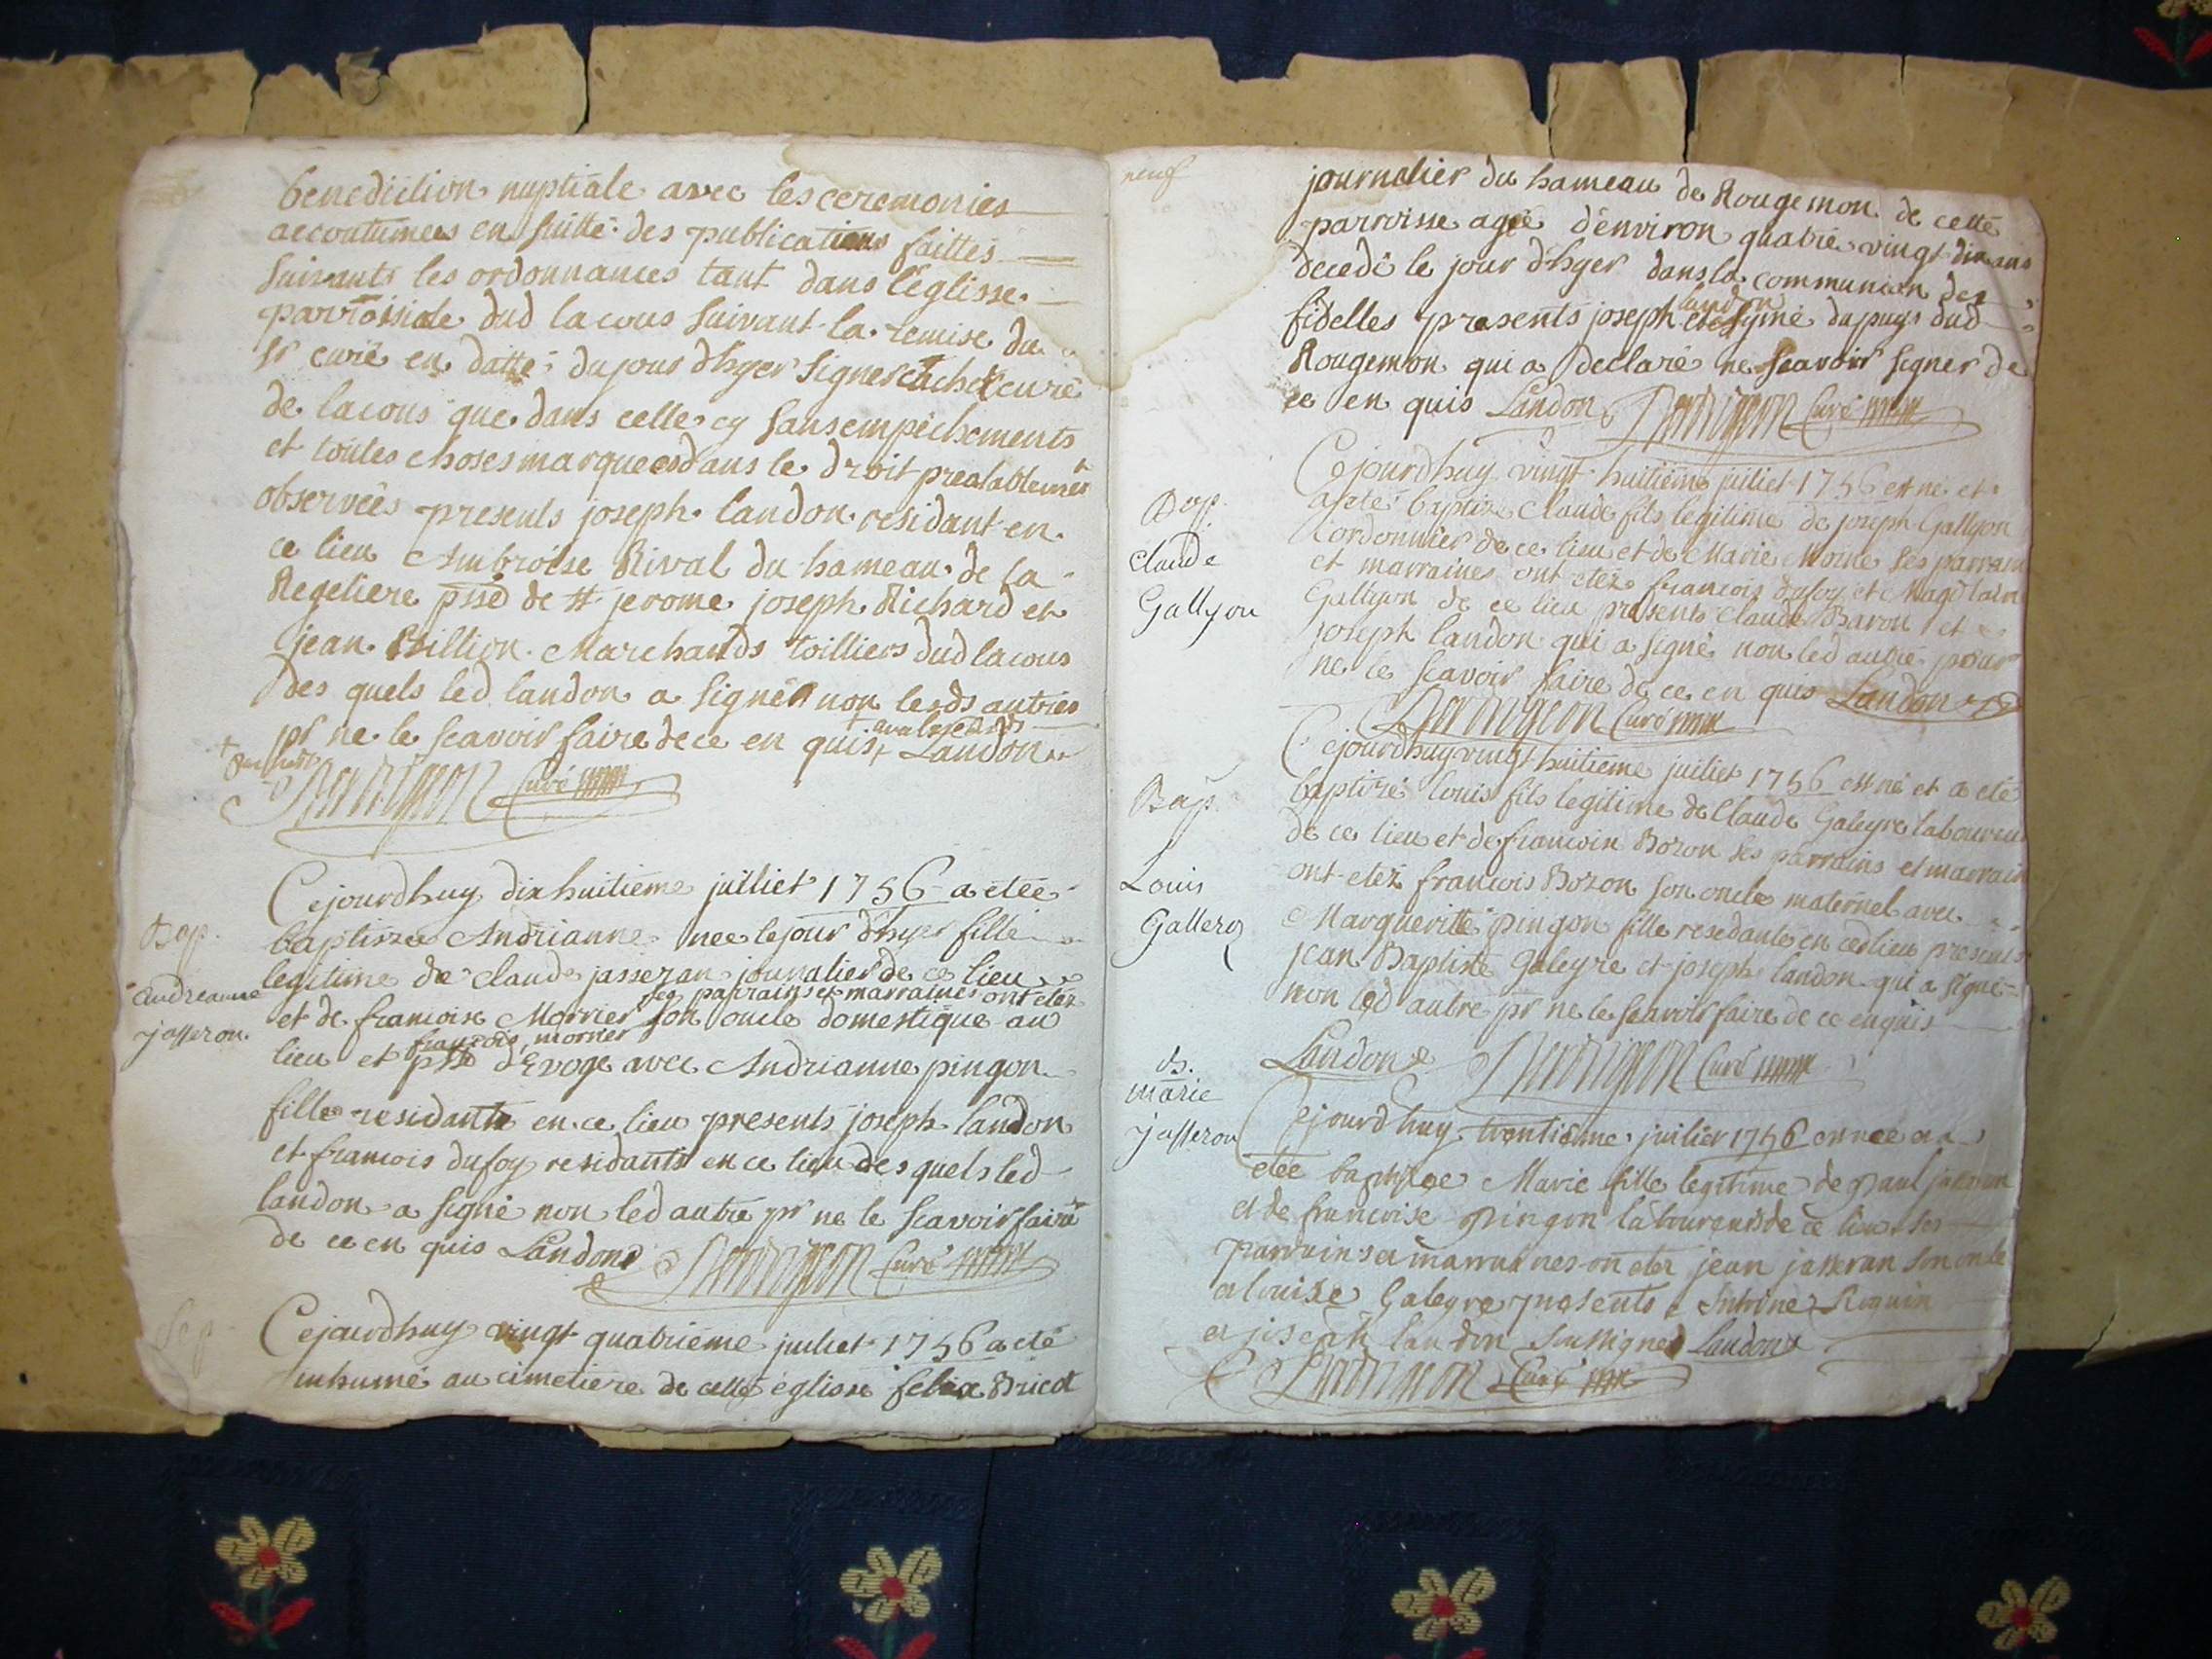 benediction nuptiale avec les ceremonies
accoutumees en suitte des publications faittes
suivants les ordonnances tant dans l'eglisse
parroissiale dud lacous suivant la remise du
sr curé en datte du jour d'hyer signer curé
de lacous que dans celle cy sans empechements
et toutes choses marquees dans le droit prealablement
observées presents joseph landon residant en
ce lieu Ambroise Rival du hameau de la
Regeliere psse de st jerome joseph Richard et
jean Billion Marchands toilliers dud lacous
des quels led landon a signé non lesds autres
pr ne le scavoir faire de ce en quis Landon
Curé
Bap.
andreanne
jasseron.
Cejourdhuy dix huitieme juilliet 1756 a etée
baptissée Andrianne née le jour d'hyer fille
legitime de claude jasseran journalier de ce lieu
ses parrains et marraines ont etéz
et de francoise Morrier son oncle domestique au
francois morrier
lieu et psse d'Evoge avec Andrianne pingon
fille residante en ce lieu presents joseph landon
et francois dufoy residants en ce lieu des quels led
landon a signé non led autre pr ne le scavoir faire
de ce en quis Landon Curé
Sep.
Cejourdhuy vingt quatrieme juliet 1756 a eté
inhumé au cimetiere de cette eglise felix Bricot
neuf
journalier du hameau de Rougemon de cette
parroisse agée d'environ quatre vingt dix ans
decedé le jour d'hyer dans la communion des
landon
fidelles presents joseph et dupuys dud
Rougemon qui a declaré ne scavoir signer de
ce en quis Landon Curé
Bap.
claude
Gallyon
Cejourdhuy vingt huitieme juiliet 1756 est né et
a eté baptizé Claude fils legitime de joseph Gallyon
Cordonnier de ce lieu et de Marie Moine ses parrain
et marraines ont etéz francois dufoy et Magdlaine
Gallyon de ce lieu presents claude Baron et
joseph landon qui a signé non led autre pour
ne le scavoir faire de ce en quis Landon
Curé
Bap.
Louis
Gallery
Cejourdhuy vingt huitieme juiliet 1756 est né et a eté
baptizé louis fils legitime de Claude Galeyre laboureur
de ce lieu et de francoise Bozon ses parrains et marrain
ont etéz francois Bozon son oncle maternel avec
Margueritte pingon fille residante en ced lieu presents
jean Baptiste Galeyre et joseph landon qui a signé
non led autre pr ne le scavoir faire de ce enquis
Landon Curé
b.
marie
jasseron
Cejourdhuy trentieme juilier 1756 est née et a
etée baptizee Marie fille legitime de paul jasseran
et de francoise pingon laboureurs de ce lieu ses
parrains et marraines ont etez jean jasseran son oncle
et louise Galeyre presents Antoine Roguin
et joseph landon soussignes Landon
Curé